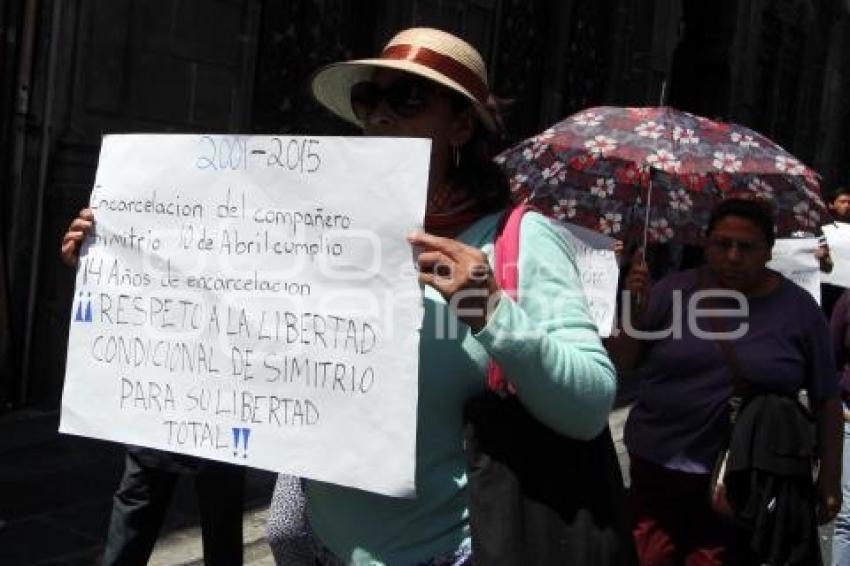 2001-2015
Encarcelacion del compañero
Simitrio 10 de Abril cumplio
14 Años de encarcelacion
¡¡ RESPETO A LA LIBERTAD
CONDICIONAL DE SIMITRIO
PARA SU LIBERTAD
TOTAL!!
enfoque